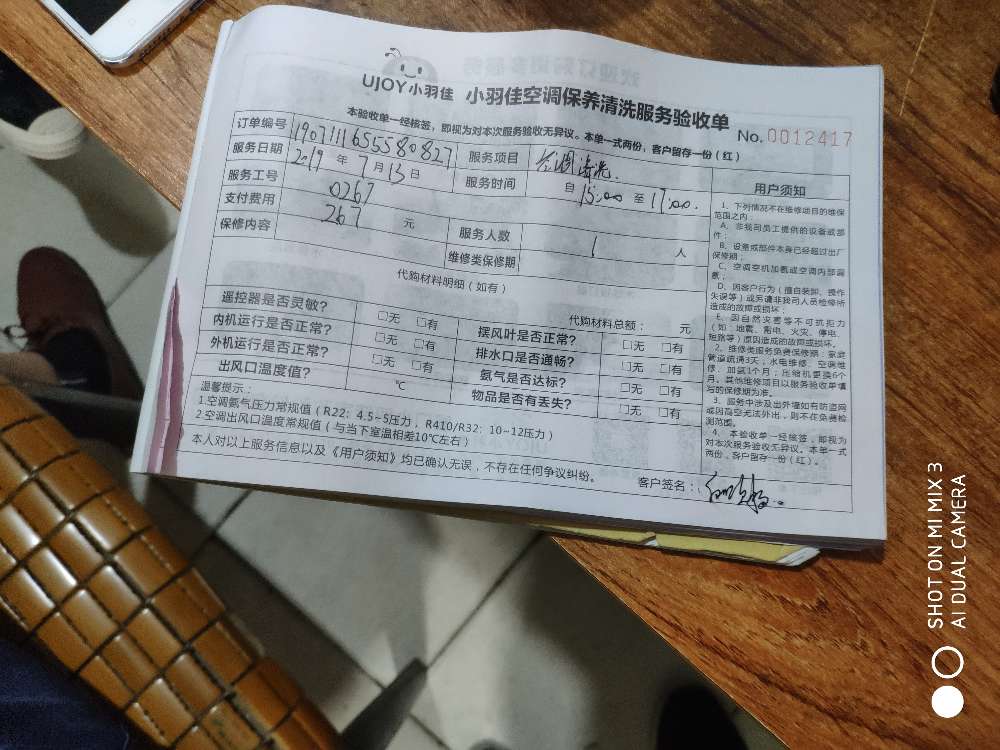 UJOY小羽佳 小羽佳空调保养清洗服务验收单
本验收单一经核签，即视为对本次服务验收无异议。本单一式两份，客户留存一份（红）
No.0012417
订单编号 1907111655580827 服务项目 空调清洗.
服务日期 2019 年 7 月 13 日 服务时间 自 15:00 至 17:00.
服务工号 0267
支付费用 267 元 服务人数 1 人
保修内容 维修类保修期
代购材料明细（如有）
代购材料总额： 元
遥控器是否灵敏？ □无 □有 摆风叶是否正常？ □无 □有
内机运行是否正常？ □无 □有 排水口是否通畅？ □无 □有
外机运行是否正常？ □无 □有 氨气是否达标？ □无 □有
出风口温度值？ ℃ 物品是否有丢失？ □无 □有
温馨提示：
1.空调氨气压力常规值（R22：4.5~5压力，R410/R32：10~12压力）
2.空调出风口温度常规值（与当下室温相差10℃左右）
本人对以上服务信息以及《用户须知》均已确认无误，不存在任何争议纠纷。
客户签名：
用户须知
1、下列情况不在维修项目的维保
范围之内：
A、非我司员工提供的设备或部
件；
B、设备或部件本身已经超过出厂
保修期；
C、空调空机加氨或空调内部漏
氨；
D、因客户行为（擅自装卸、操作
失误等）或另请非我司人员检修所
造成的故障或损坏；
E、因自然灾害等不可抗拒力
（如：地震、雷电、火灾、停电、
短路等）原因造成的故障或损坏。
2、维修类服务免费保修期：家庭
管道疏通3天；水电维修、空调维
修、加氨1个月；压缩机更换6个
月。其他维修项目以服务验收单填
写的保修期为准。
3、服务中涉及出外墙如有防盗网
或因高空无法外出，则不在免费检
测范围。
4、本验收单一经核签，即视为
对本次服务验收无异议。本单一式
两份，客户留存一份（红）。
SHOT ON MI MIX 3
AI DUAL CAMERA